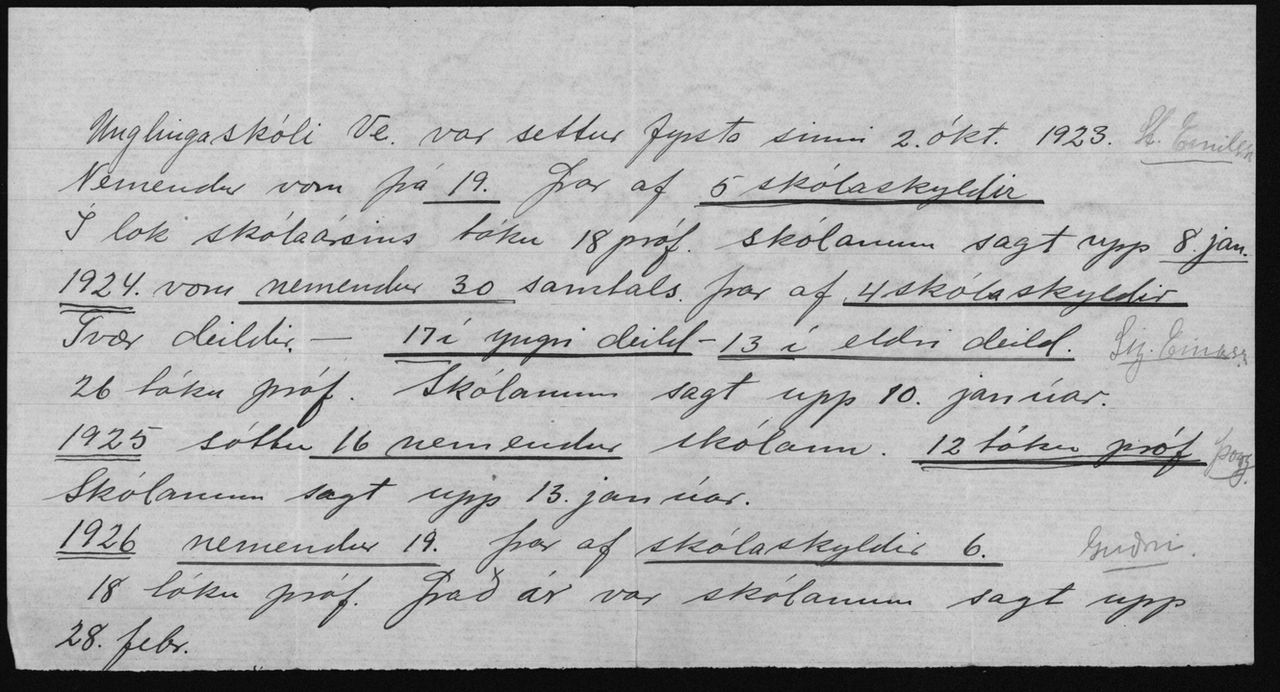 Unglingaskóli Ve. var settur fyrsta sinni 2. ókt. 1923. St. Emilsd.
Nemendur voru þá 19. Þar af 5 skólaskyldir
Í lok skólaársins tóku 18 próf. Skólanum sagt upp 8. jan.
1924. voru nemendur 30 samtals. þar af 4 skólaskyldir
Tvær deildir. — 17 í yngri deild – 13 í eldri deild. Sig. Einars.
26 tóku próf. Skólanum sagt upp 10. janúar.
1925 sóttu 16 nemendur skólann. 12 tóku próf
Skólanum sagt upp 13. janúar.
1926 nemendur 19. þar af skólaskyldir 6.
18 tóku próf. Það ár var skólanum sagt upp
28. febr.